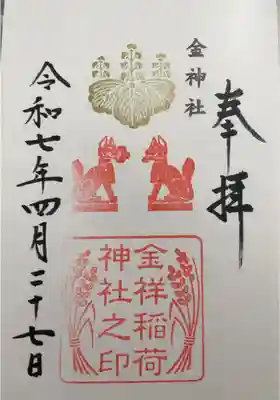 奉拝
金神社
金祥稲荷
神社之印
令和七年四月二十七日